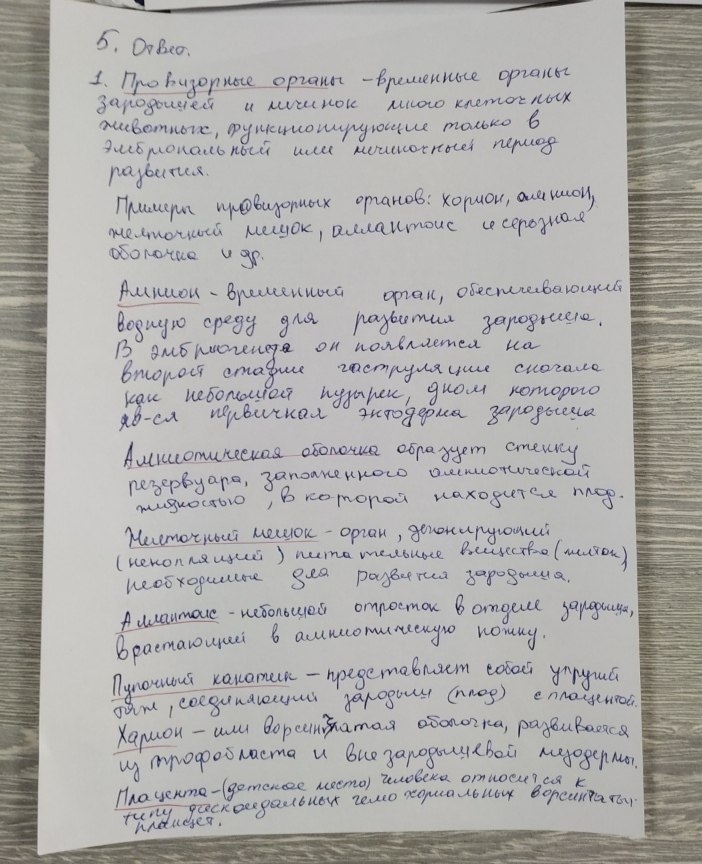 5. Ответ.
1. Провизорные органы – временные органы
зародышей и личинок многоклеточных
животных, функционирующие только в
эмбриональный или личиночный период
развития.
Примеры провизорных органов: хорион, амнион,
желточный мешок, аллантоис и серозная
оболочка и др.
Амнион – временный орган, обеспечивающий
водную среду для развития зародыша.
В эмбриогенезе он появляется на
второй стадии гаструляции сначала
как небольшой пузырек, дном которого
яв-ся первичная эктодерма зародыша
Амниотическая оболочка образует стенку
резервуара, заполненного амниотической
жидкостью, в которой находится плод.
Желточный мешок – орган, депонирующий
(накоплящий) питательные вещества (желток)
необходимые для развития зародыша.
Аллантоис – небольшой отросток в отделе зародыша,
врастающей в амниотическую ножку.
Пупочный канатик – представляет собой упругий
тяж, соединяющий зародыш (плод) с плацентой.
Харион – или ворсинчатая оболочка, развивается
из трофобласта и внезародышевой мезодермы.
Плацента – (детское место) человека относится к
типу дискоидальных гемохориальных ворсинчатых
плацент.